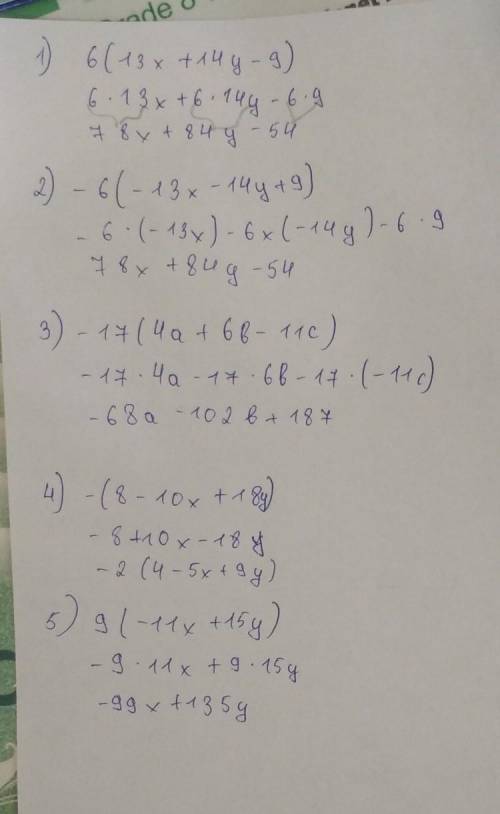 rade
1) 6(13x+14y-9)
6·13x+6·14y-6·9
78x+84y-54
2) -6(-13x-14y+9)
-6·(-13x)-6x(-14y)-6·9
78x+84y-54
3) -17(4a+6b-11c)
-17·4a-17·6b-17·(-11c)
-68a-102b+187
4) -(8-10x+18y)
-8+10x-18y
-2(4-5x+9y)
5) 9(-11x+15y)
-9·11x+9·15y
-99x+135y